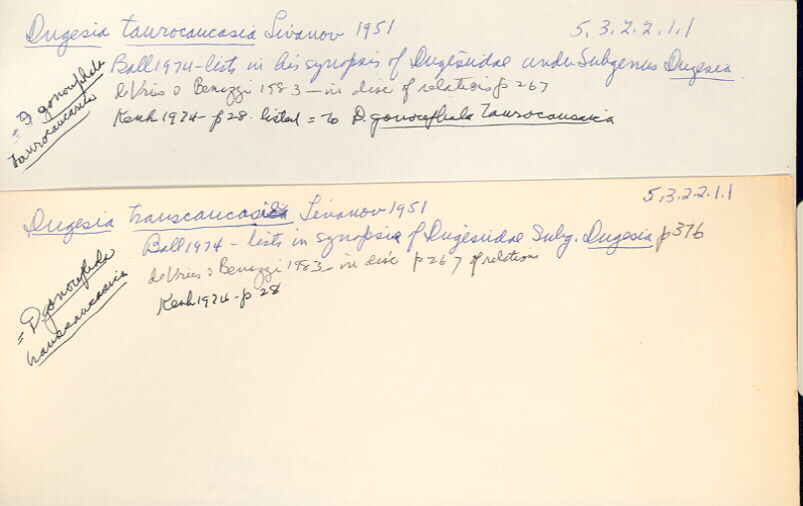 Dugesia taurocaucasia Livanov 1951 5.3.2.2.1.1
Ball 1974 - lists in his synopsis of Dugesiidae under Subgenus Dugesia.
deVries & Benazzi 1983 - in disc of relations p 267
Kenk 1974 - p 28 - listed = to D. gonocephala taurocaucasica
= D. gonocephala
taurocaucasica
Dugesia transcaucasica Livanov 1951 5.3.2.2.1.1
Ball 1974 - lists in synopsis of Dugesiidae Subg. Dugesia p 376
deVries & Benazzi 1983 - in disc p 267 of relations
Kenk 1974 - p 28
= D. gonocephala
transcaucasica